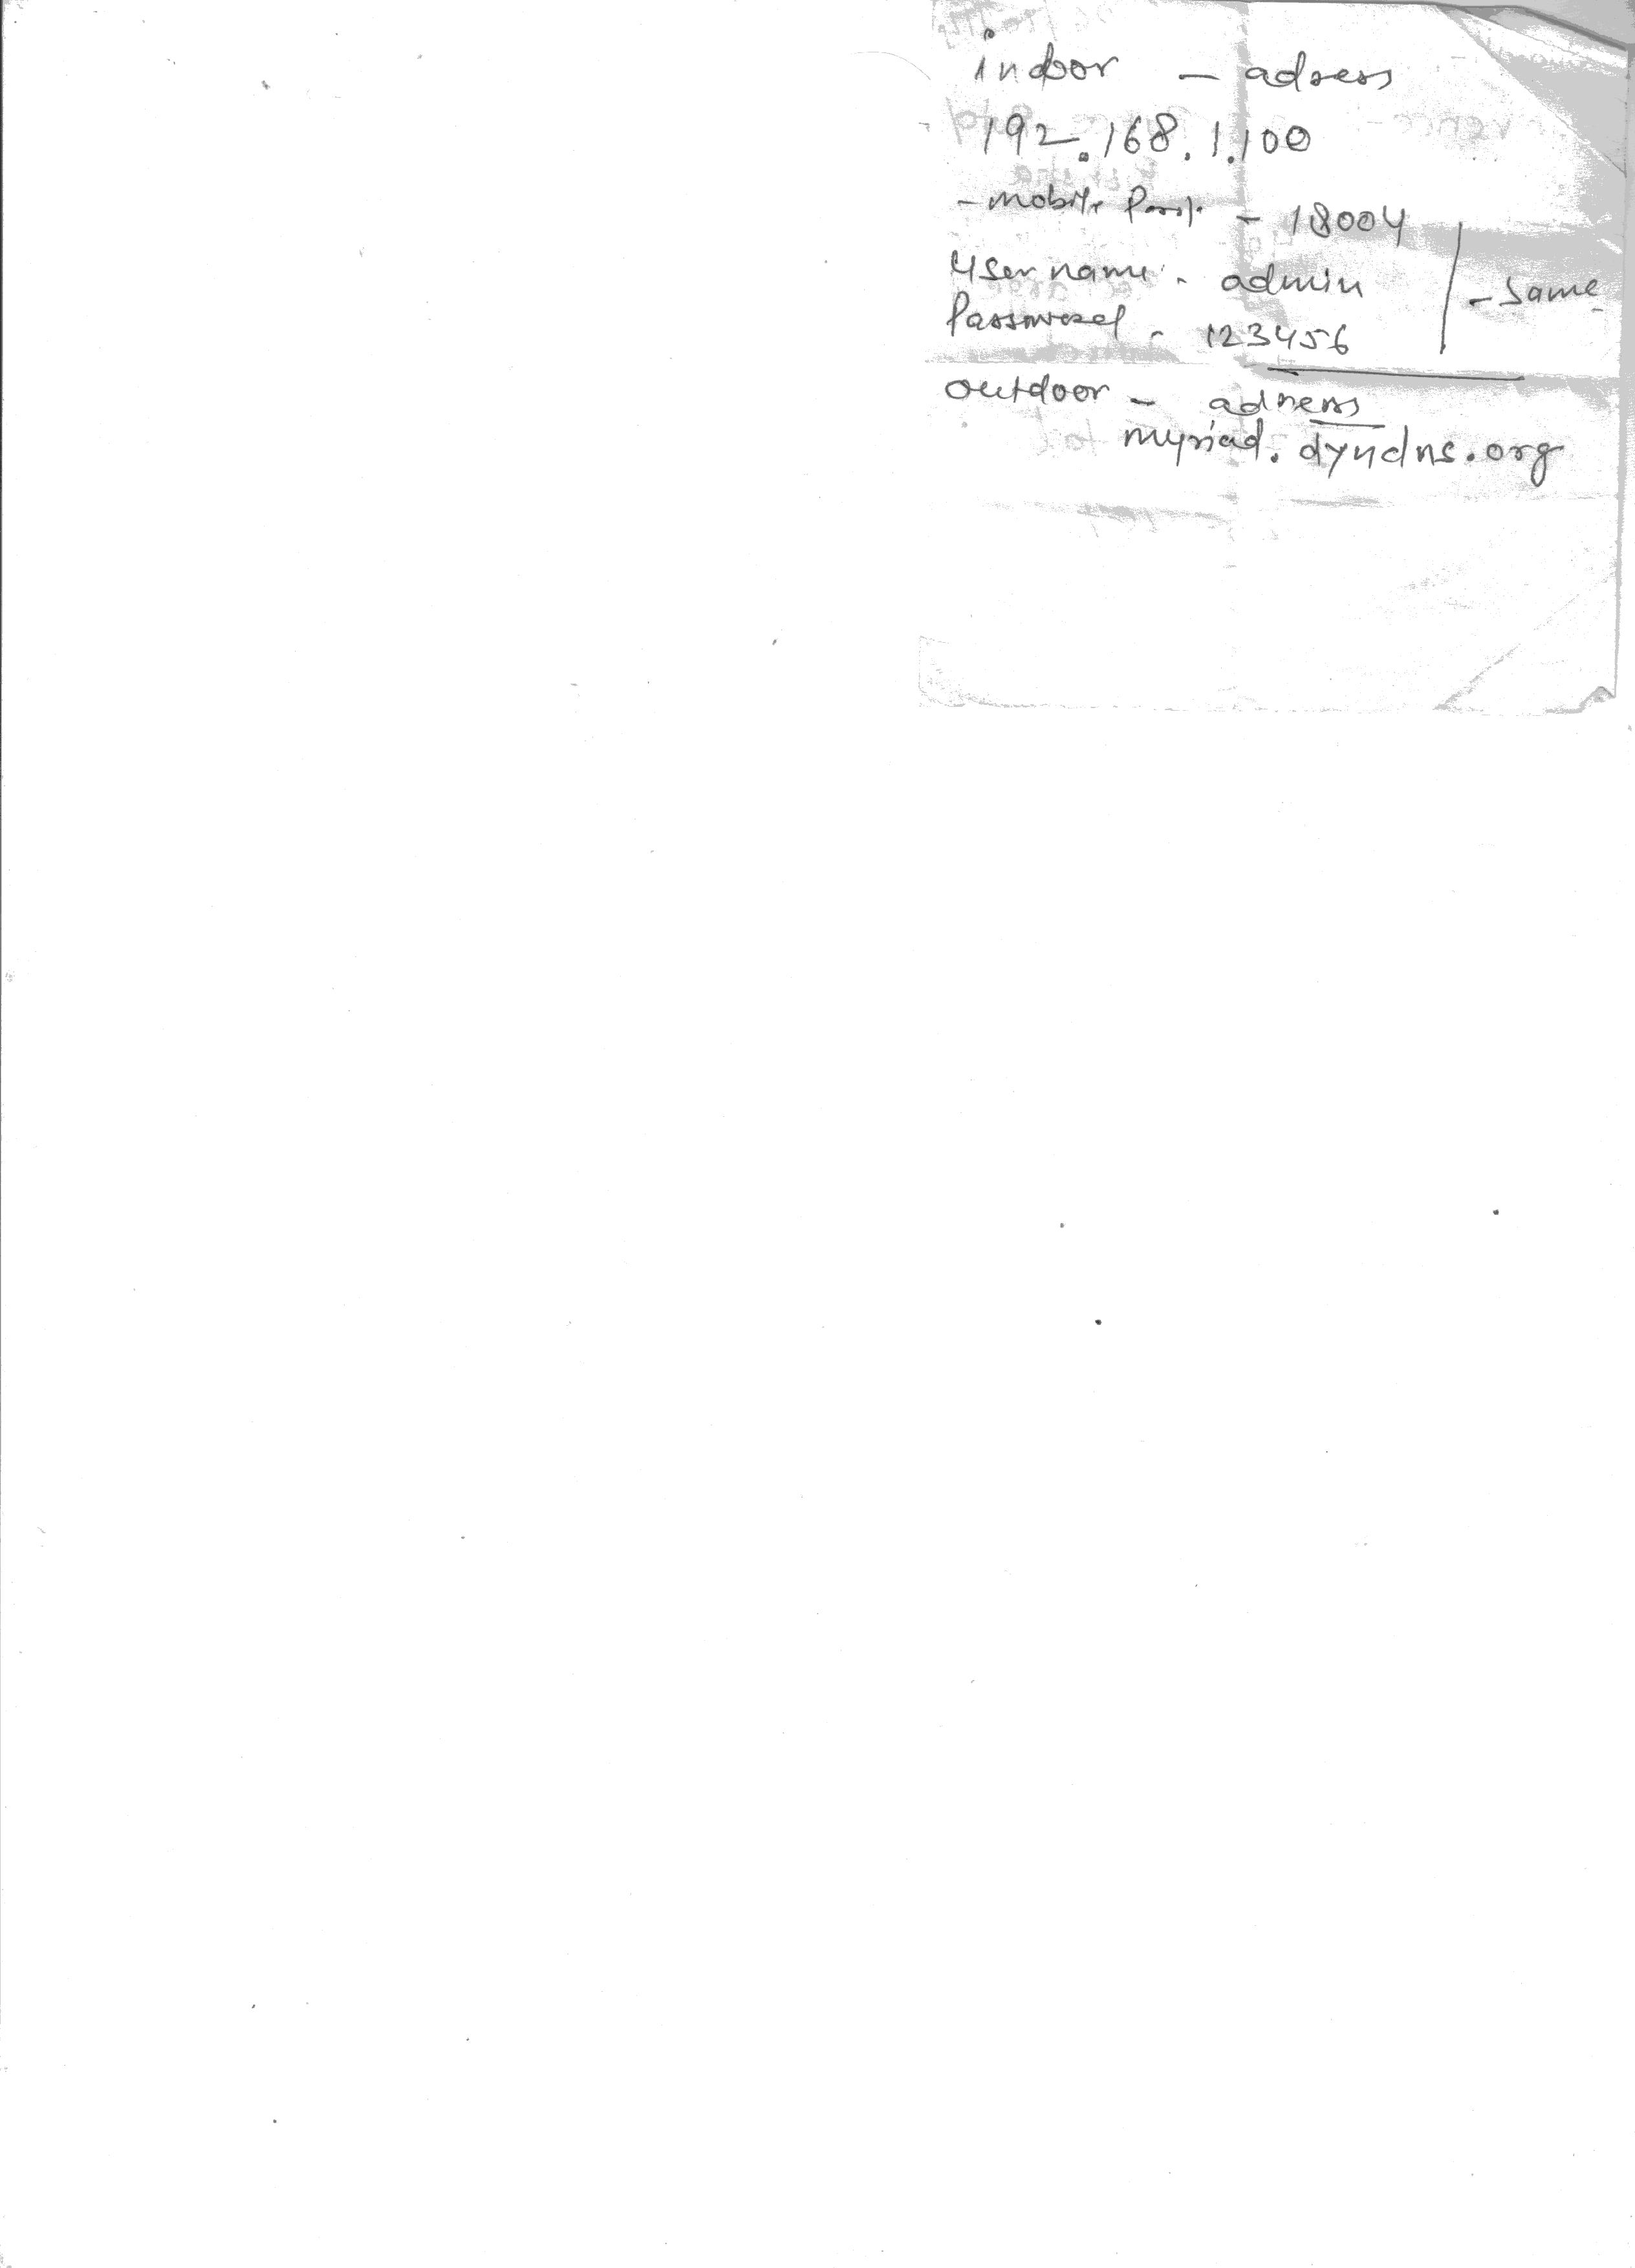 indoor - adress
192.168.1.100
- mobile Port - 18004
User name - admin
Password - 123456
- Same
outdoor - adress
myriad.dyndns.org